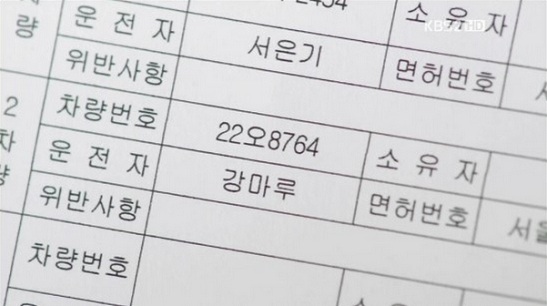 2454 소 유 자
KBS2 HD
량 운 전 자 서은기 면허번호
위반사항
2 차량번호 22오8764 소 유 자
차 운 전 자 강마루 면허번호 서울
량 위반사항
차량번호